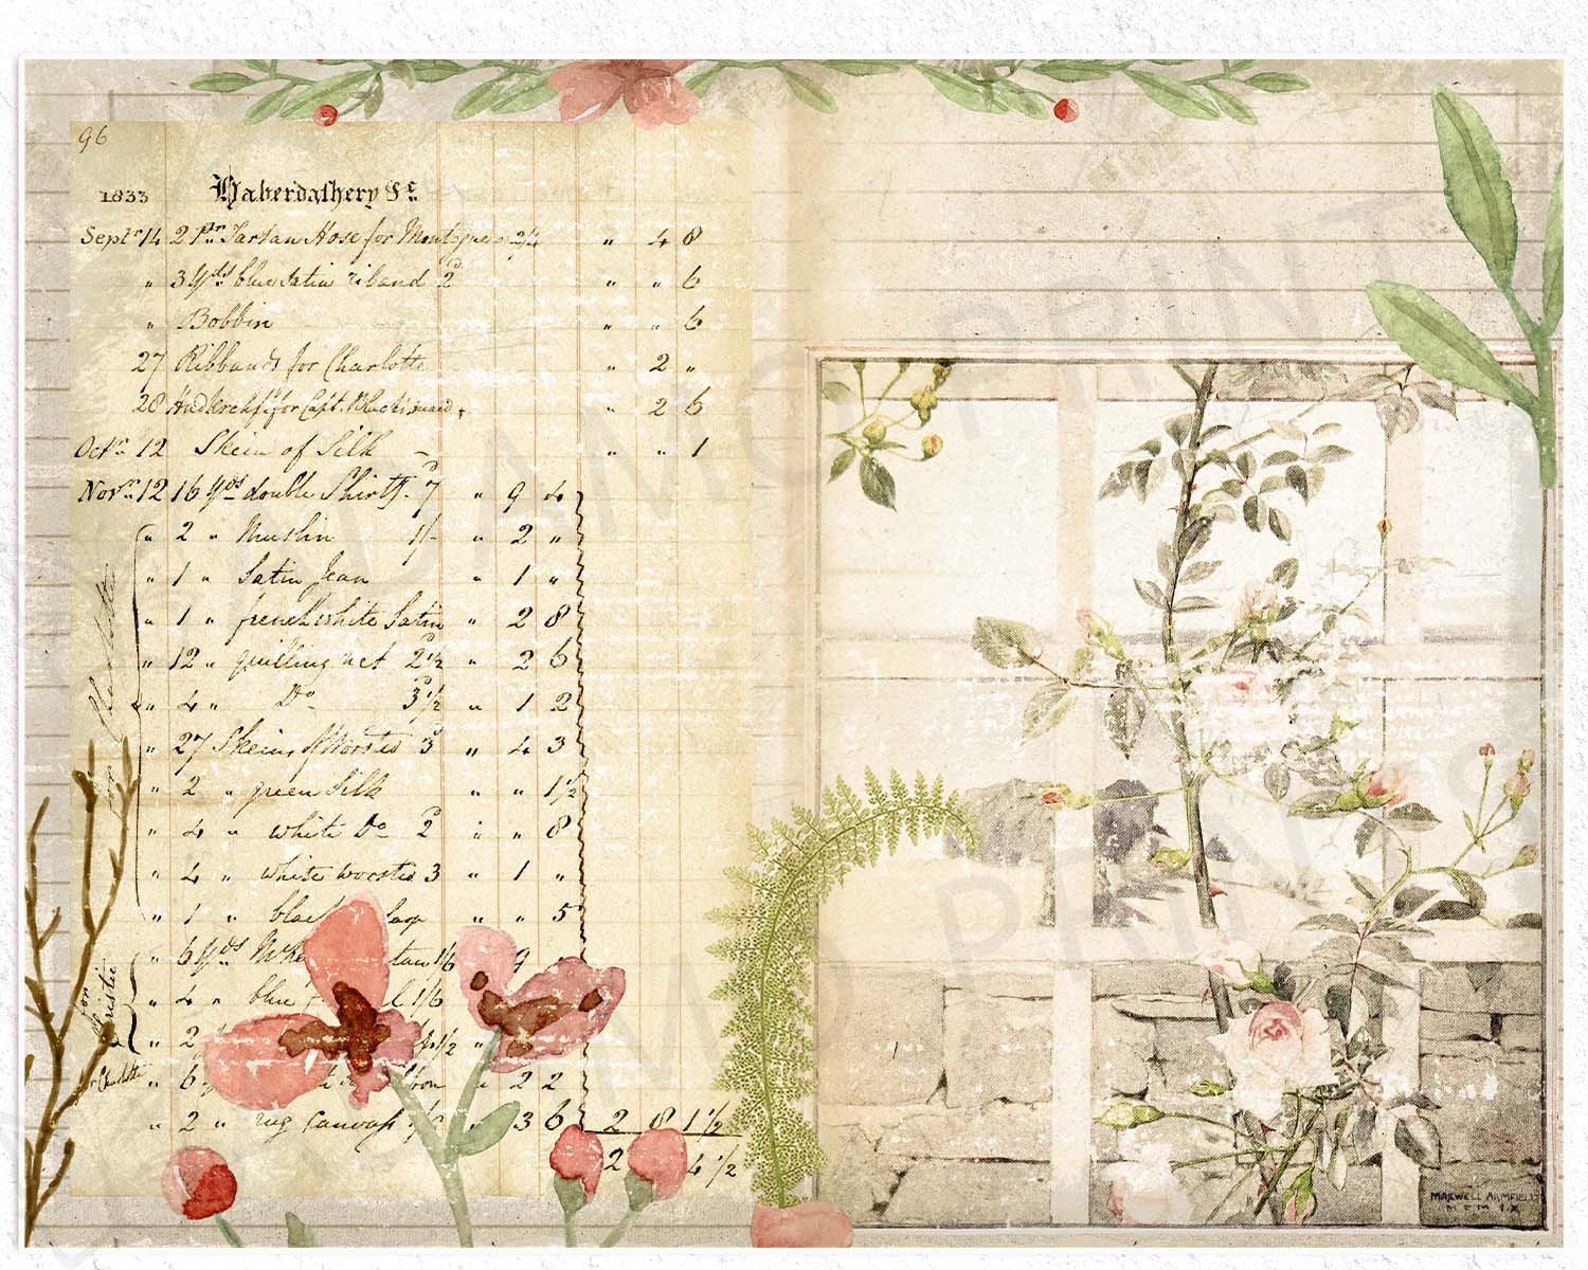 96
1833 Haberdashery &c
Septr 14 2 Pr Tartan Hose for 2/4 " 4 8
" 3 Yds blue satin riband 2d " " 6
" Bobbin " " 6
27 Ribbands for Charlotte " 2 "
28 Handkerchf for Capt. " 2 6
Octr 12 Skein of Silk - " " 1
Novr 12 16 Yds double Shirtg. 7d " 9 4
" 2 " Muslin 1/- " 2 "
" 1 " Satin Jean " 1 "
" 1 " french white Satin " 2 8
" 12 " quilling net 2½ " 2 6
" 4 " Do 3½ " 1 2
" 27 Skeins of Worsted 3d " 4 3
" 2 " green Silk " " 1½
" 4 " white Do 2d " " 8
" 4 " white worsted 3 " 1 "
" 1 " " " 5
" 6 Yds 1/6 9
" 4 " blue 1/6
" 2
" 6 " 2 2
" 2 " rug Canvass 3 6 2 8 1½
2 4½
for Charlotte
for Christie
for Charlotte
MAXWELL ARMFIELD